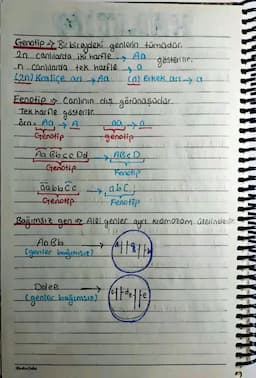 Genotip → Bir bireydeki genlerin tümüdür.
2n canlılarda iki harfle → Aa gösterilir.
n canlılarda tek harfle → a
(2n) Kraliçe arı → Aa (n) Erkek arı → a
Fenotip → Canlının dış görünüşüdür.
Tek harfle gösterilir.
örn: Aa → A aa → a
Genotip genotip
Aa Bb cc Dd → ABcD
Genotip Fenotip
aa bb Cc → abC
Genotip Fenotip
Bağımsız gen → Alel genler ayrı kromozom üzerindedir
AaBb →
(genler bağımsız)
(genler bağımsız)